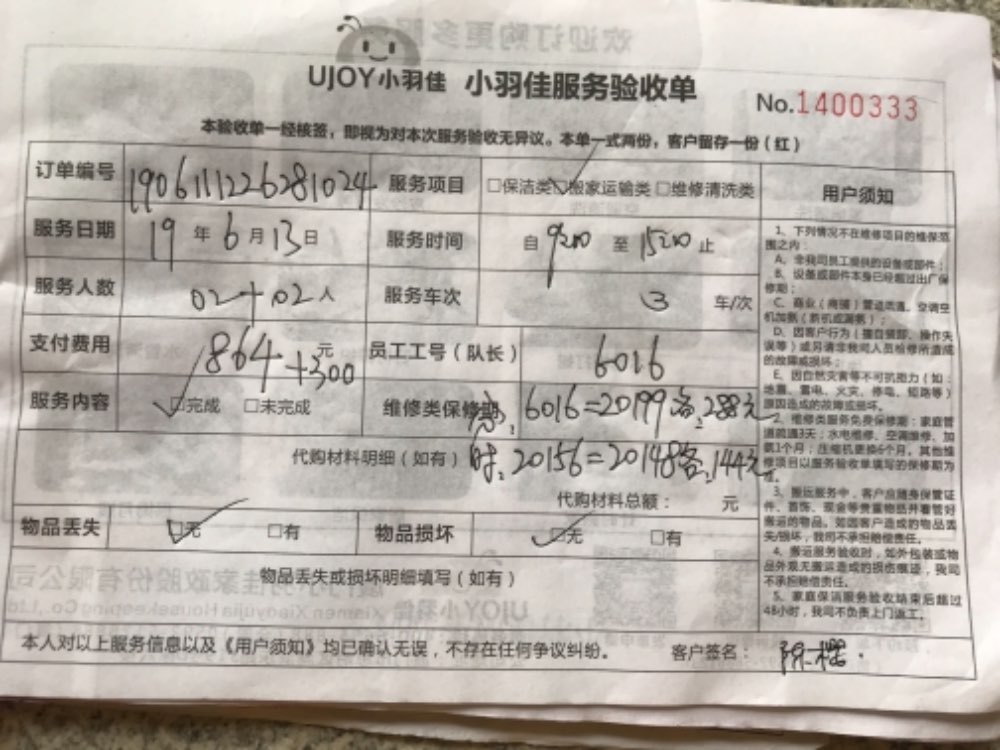 UJOY小羽佳 小羽佳服务验收单
No.1400333
本验收单一经核签，即视为对本次服务验收无异议。本单一式两份，客户留存一份（红）
订单编号 1906111226281024 服务项目 □保洁类 ☑搬家运输类 □维修清洗类
服务日期 19年6月13日 服务时间 自9:00至15:00止
服务人数 02+02人 服务车次 3 车/次
支付费用 864+300元 员工工号（队长） 6016
服务内容 ☑完成 □未完成 维修类保修期 6016=20199各288元
代购材料明细（如有） 时.20156=20148各144元
代购材料总额： 元
物品丢失 ☑无 □有 物品损坏 ☑无 □有
物品丢失或损坏明细填写（如有）
本人对以上服务信息以及《用户须知》均已确认无误，不存在任何争议纠纷。 客户签名：
用户须知
1、下列情况不在维修项目的维保范
围之内：
A、非我司员工提供的设备或部件；
B、设备或部件本身已经超过出厂保
修期；
C、商业（商铺）管道疏通、空调空
机加氨（新机或漏氨）；
D、因客户行为（擅自装卸、操作失
误等）或另请非我司人员检修所造成
的故障或损坏；
E、因自然灾害等不可抗拒力（如：
地震、雷电、火灾、停电、短路等）
原因造成的故障或损坏。
2、维修类服务免身保修期：家庭管
道疏通3天；水电维修、空调维修、加
氨1个月；压缩机更换6个月。其他维
修项目以服务验收单填写的保修期为
准。
3、搬运服务中，客户应随身保管证
件、首饰、现金等贵重物品并看管好
搬运的物品。如因客户造成的物品丢
失/损坏，我司不承担赔偿责任。
4、搬运服务验收时，如外包装或物
品外观无搬运造成的损伤痕迹，我司
不承担赔偿责任。
5、家庭保洁服务验收结束后超过
48小时，我司不负责上门返工。